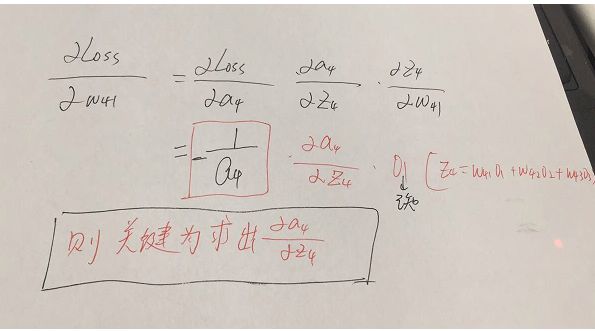 ∂Loss/∂w₄₁ = ∂Loss/∂a₄ · ∂a₄/∂z₄ · ∂z₄/∂w₄₁
= -1/a₄ · ∂a₄/∂z₄ · o₁ [z₄=w₄₁o₁+w₄₂o₂+w₄₃o₃
↓
已知
则关键为求出 ∂a₄/∂z₄